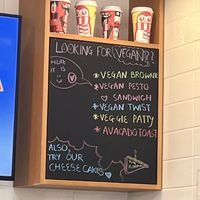 LOOKING FOR VEGAN??
HERE
IT IS
VEGAN BROWNIE
VEGAN PESTO
SANDWICH
VEGAN TWIST
VEGGIE PATTY
AVACADO TOAST
ALSO,
TRY OUR
CHEESE CAKES